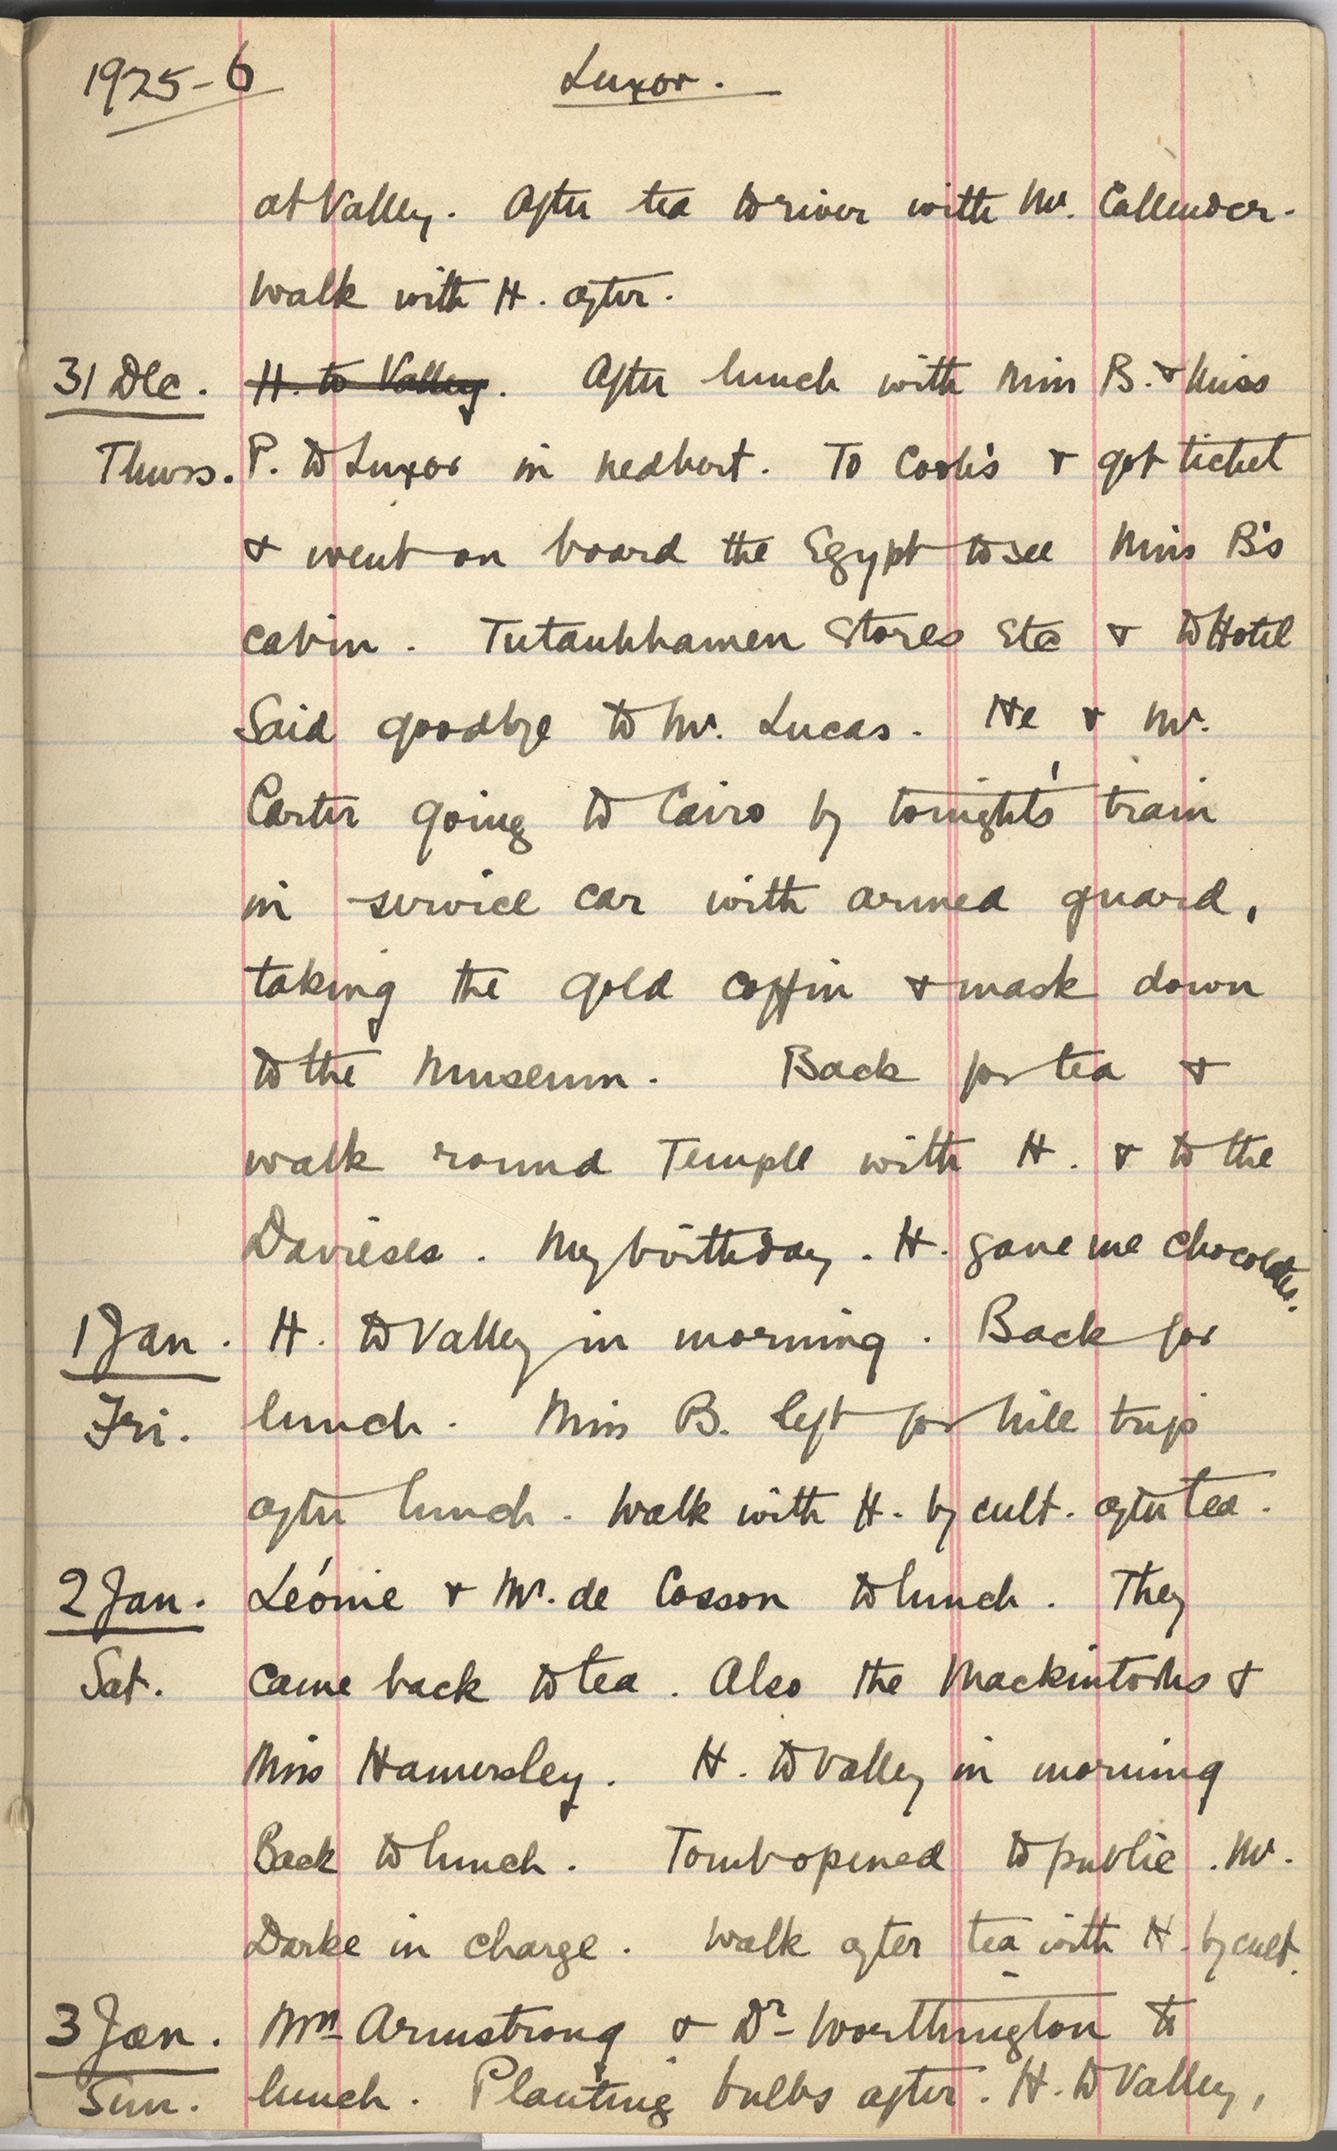 1925-6 Luxor.
at Valley. After tea to river with Mr. Callender.
Walk with H. after.
31 Dec. H. to Valley. After lunch with Miss B. & Miss
Thurs. P. to Luxor in Medhart. To Cook's & got ticket
& went on board the Egypt to see Miss B's
cabin. Tutankhamen Stores etc & to Hotel
Said goodbye to Mr. Lucas. He & Mr.
Carter going to Cairo by tonight's train
in service car with armed guard,
taking the gold coffin & mask down
to the Museum. Back for tea &
walk round Temple with H. & to the
Davieses. My birthday. H. gave me chocolates.
1 Jan. H. to Valley in morning. Back for
Fri. lunch. Miss B. left for hill trip
after lunch. Walk with H. by cult. after tea.
2 Jan. Léonie & Mr. de Cosson to lunch. They
Sat. came back to tea. Also the Mackintoshs &
Miss Hamersley. H. to Valley in morning
Back to lunch. Tomb opened to public. Mr.
Darke in charge. Walk after tea with H. by cult.
3 Jan. Mrs Armstrong & Dr Worthington to
Sun. lunch. Planting bulbs after. H. to Valley,